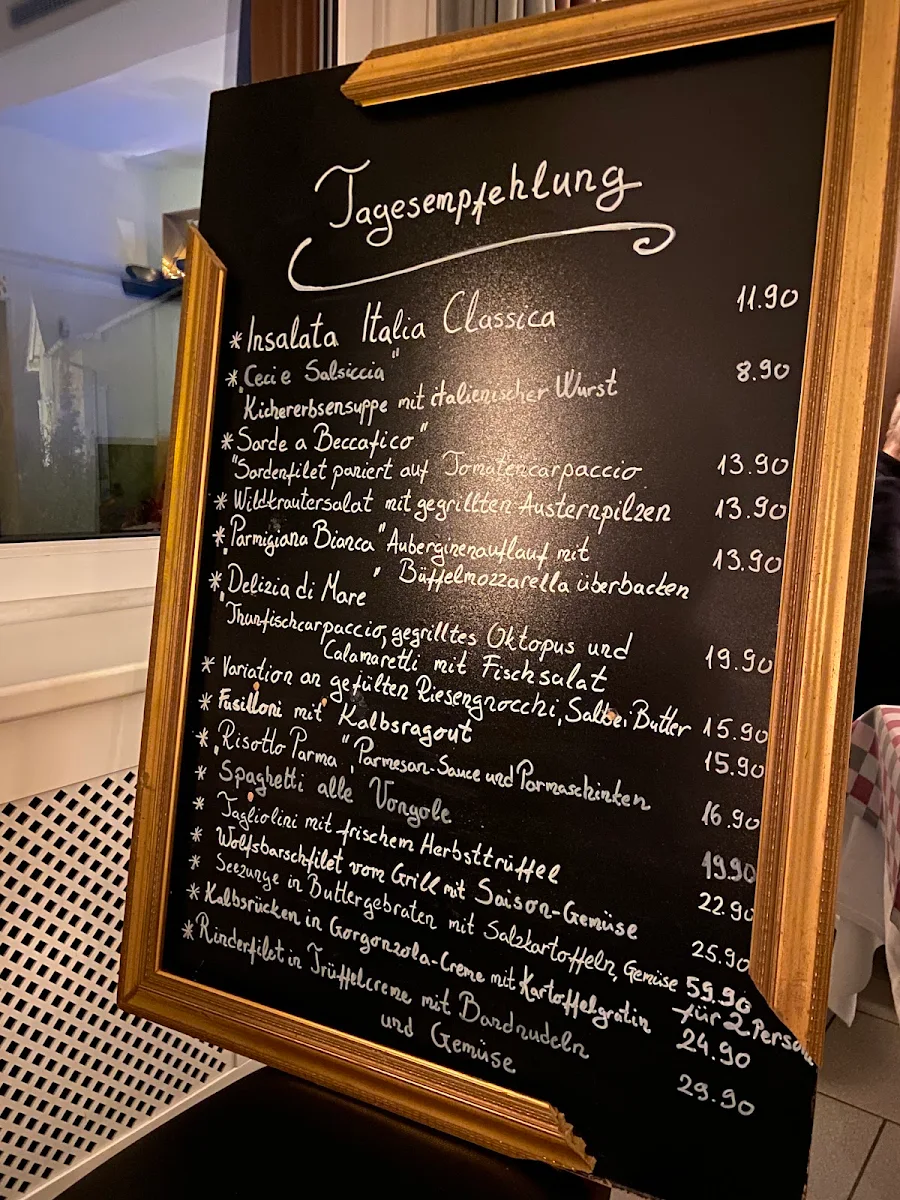 Tagesempfehlung
* Insalata Italia Classica 11.90
* „Ceci e Salsiccia" 8.90
Kichererbsensuppe mit italienischer Wurst
* Sarde a Beccafico"
"Sardenfilet paniert auf Tomatencarpaccio 13.90
* Wildkräutersalat mit gegrillten Austernpilzen 13.90
* „Parmigiana Bianca" Auberginenauflauf mit 13.90
Büffelmozzarella überbacken
* „Delizia di Mare"
Thunfischcarpaccio, gegrilltes Oktopus und
Calamaretti mit Fischsalat 19.90
* Variation an gefülten Riesengnocchi, Salbei Butter 15.90
* Fusilloni mit Kalbsragout 15.90
* „Risotto Parma", Parmesan-Sauce und Parmaschinken 16.90
* Spaghetti alle Vongole 19.90
* Tagliolini mit frischem Herbsttrüffel 22.90
* Wolfsbarschfilet vom Grill mit Saison-Gemüse 25.90
* Seezunge in Buttergebraten mit Salzkartoffeln, Gemüse 59.90
für 2 Person
* Kalbsrücken in Gorgonzola-Creme mit Kartoffelgratin 24.90
* Rinderfilet in Trüffelcreme mit Bandnudeln
und Gemüse 29.90